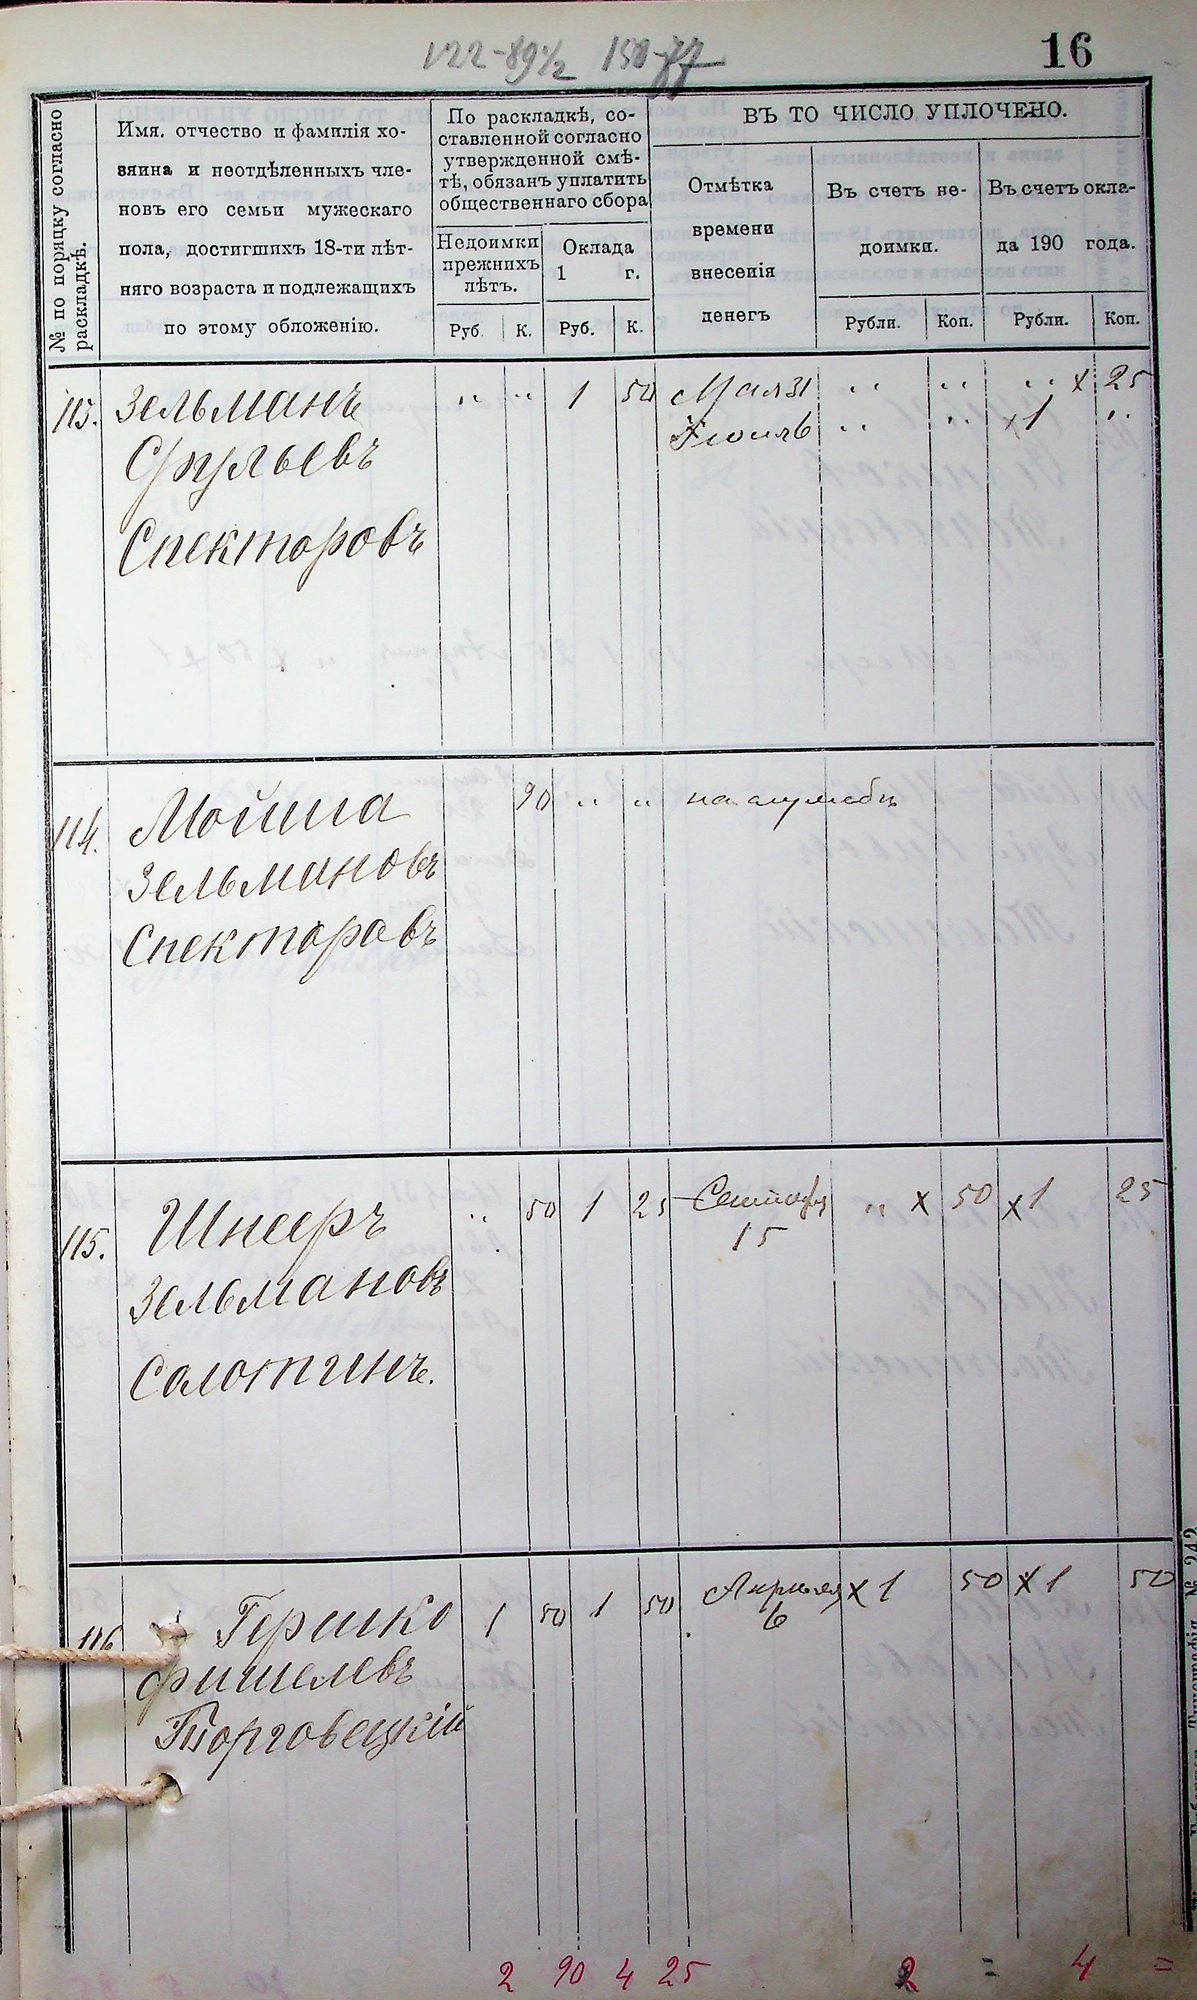 122-89½ 150-77
16
№ по порядку согласно раскладкѣ.
Имя, отчество и фамилія хо-
зяина и неотдѣленныхъ чле-
новъ его семьи мужескаго
пола, достигшихъ 18-ти лѣт-
няго возраста и подлежащихъ
по этому обложенію.
По раскладкѣ, со-
ставленной согласно
утвержденной смѣ-
тѣ, обязанъ уплатить
общественнаго сбора
Недоимки
прежнихъ
лѣтъ.
Оклада
1 г.
Руб. К. Руб. К.
ВЪ ТО ЧИСЛО УПЛОЧЕНО.
Отмѣтка
времени
внесенія
денегъ
Въ счетъ не-
доимки.
Рубли. Коп.
Въ счетъ окла-
да 190 года.
Рубли. Коп.
113. Зельманъ " " 1 50 Мая 31 " " " x 25
Іюля 6 " " x 1 "
Спекторовъ
114. Мойша 90 " " на службѣ
Зельмановъ
Спекторовъ
115. Шнееръ " 50 1 25 Сентября " x 50 x 1 25
15
Зельмановъ
Солоткинъ.
116 Гершко 1 50 1 50 Апрѣля x 1 50 x 1 50
6
Фишелевъ
Торговецкій
2 90 4 25 2 = 4 =